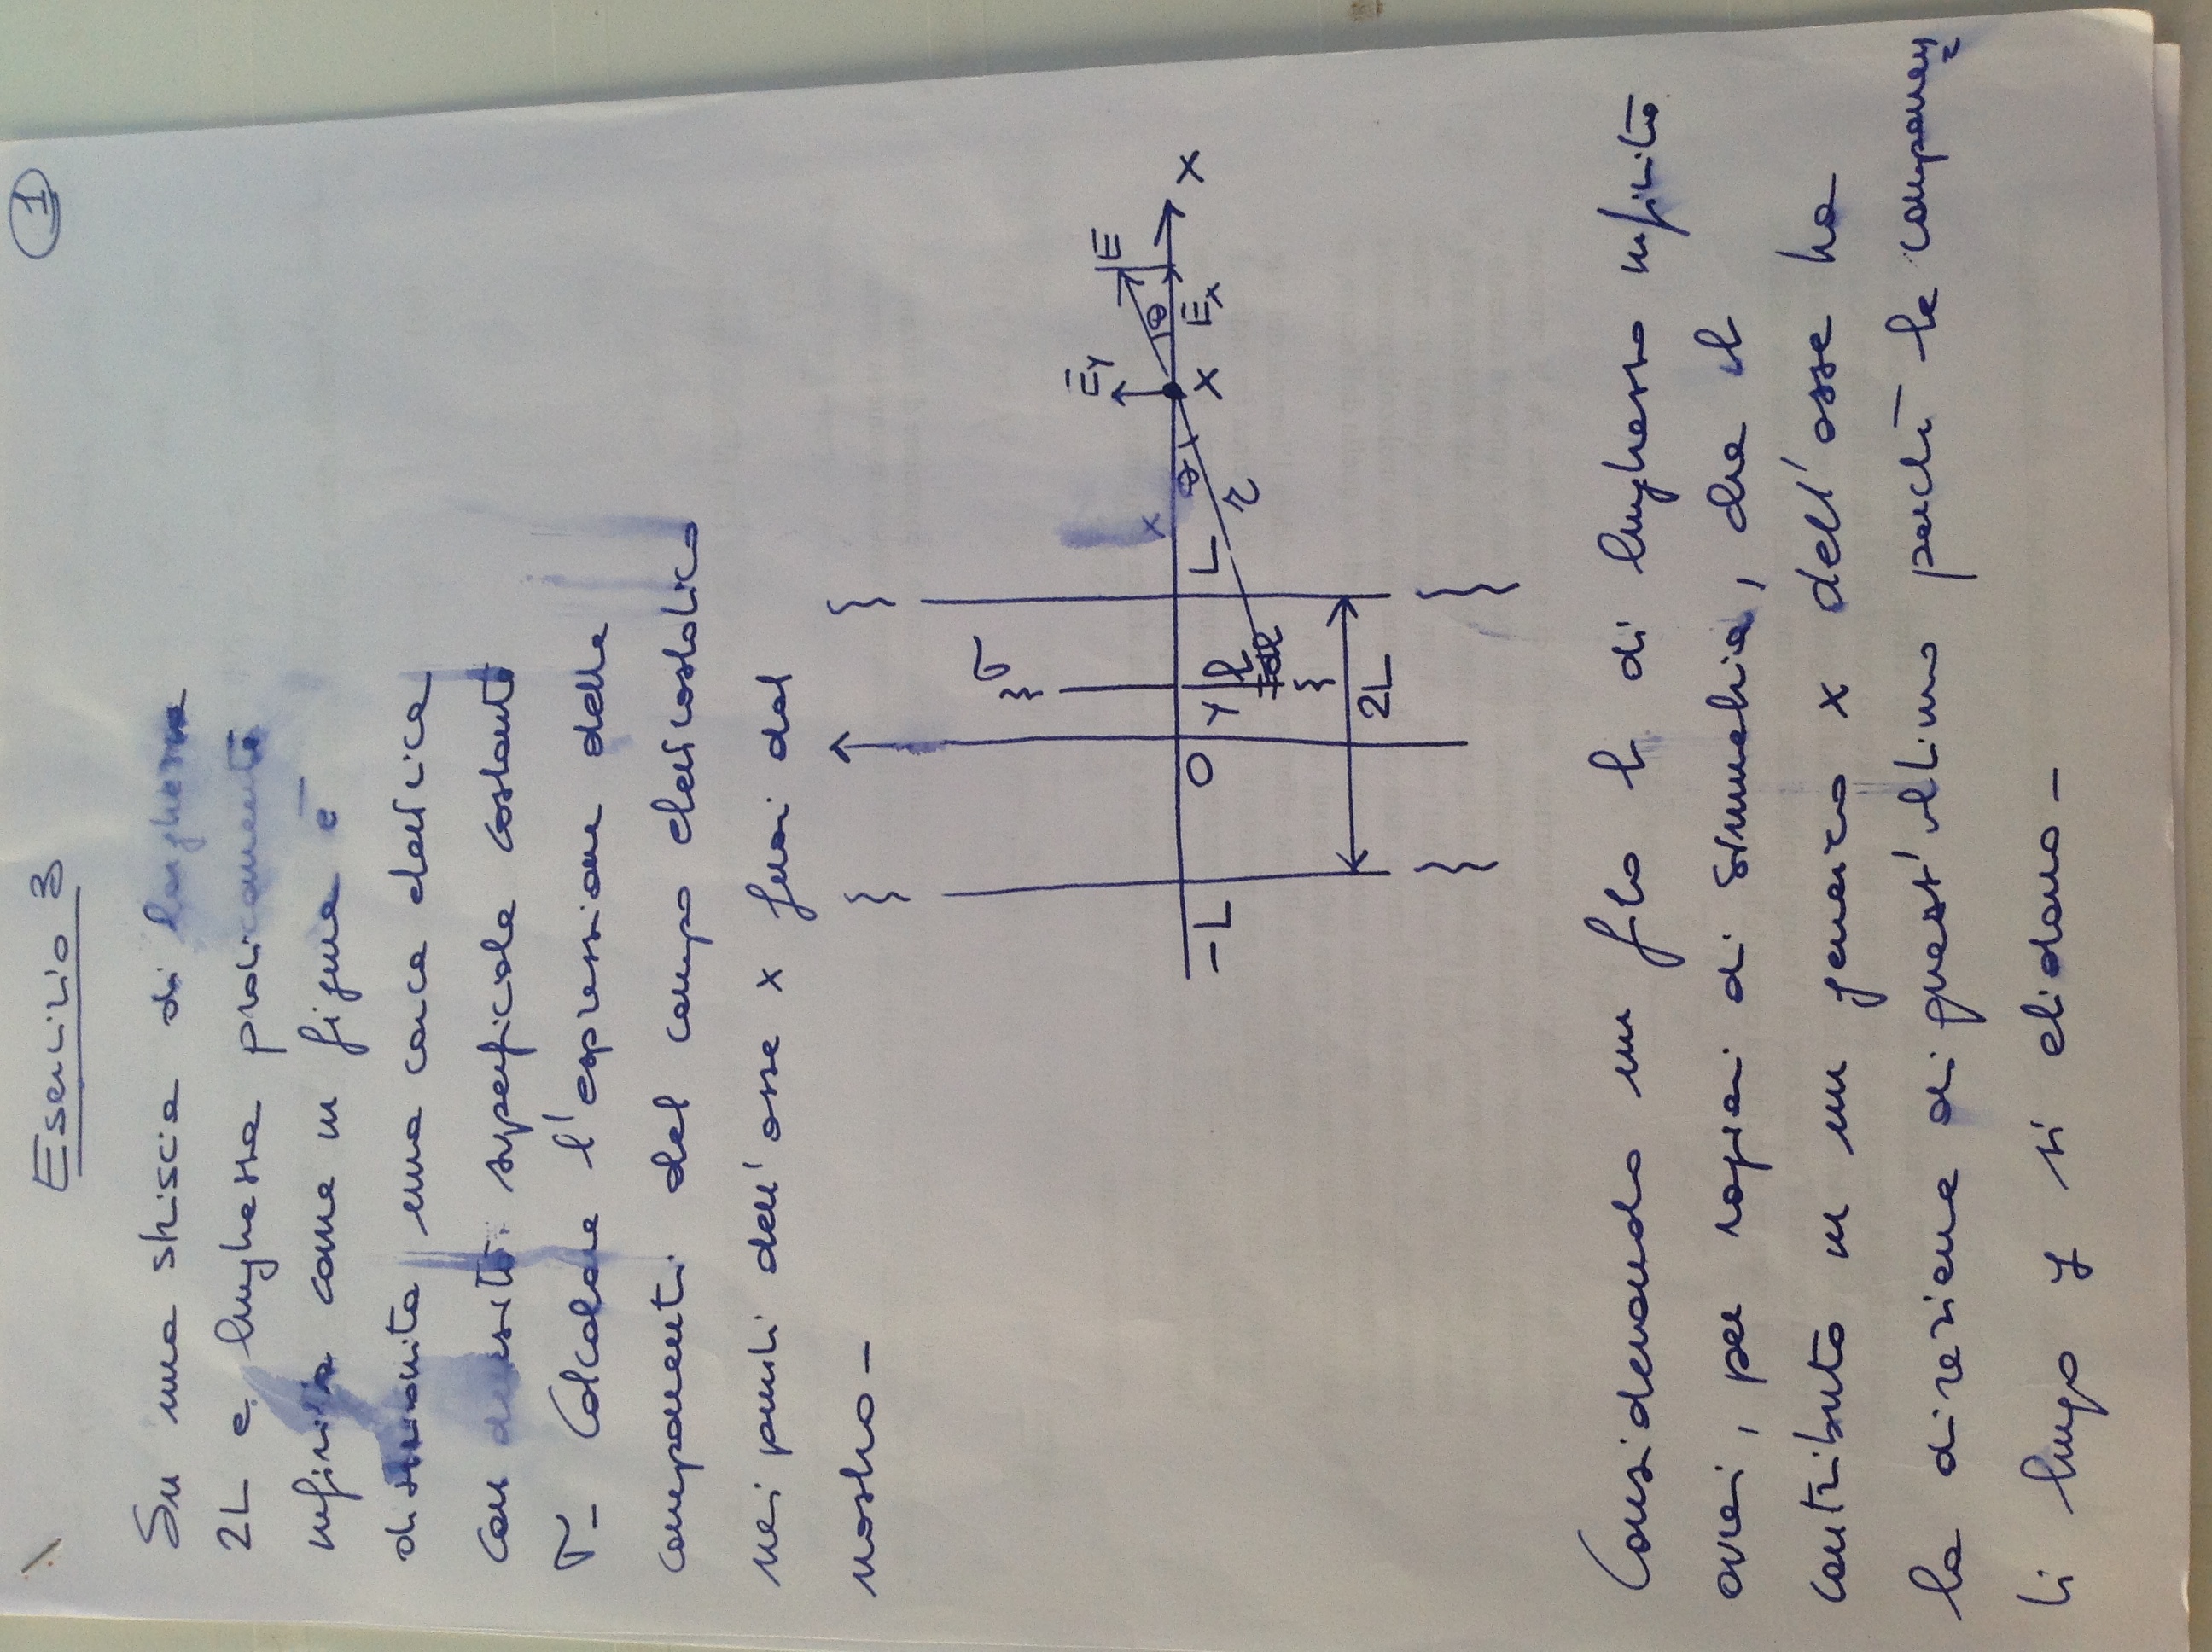 Esercizio 3
1
Su una striscia di larghezza
2L e lunghezza praticamente
infinita come in figura è
distribuita una carica elettrica
con densità superficiale costante
σ- Calcolare l'espressione delle
componenti del campo elettrostatico
nei punti dell'asse x fuori dal
nastro-
σ
E̅y
E
θ
x
-L
O
y
l
L
θ
x
Ex
x
r
dl
2L
Considerando un filo l di lunghezza infinita
avrei, per ragioni di simmetria, che il
contributo in un generico x dell'asse ha
la direzione di quest'ultimo perché le componen=
ti lungo y si elidono-